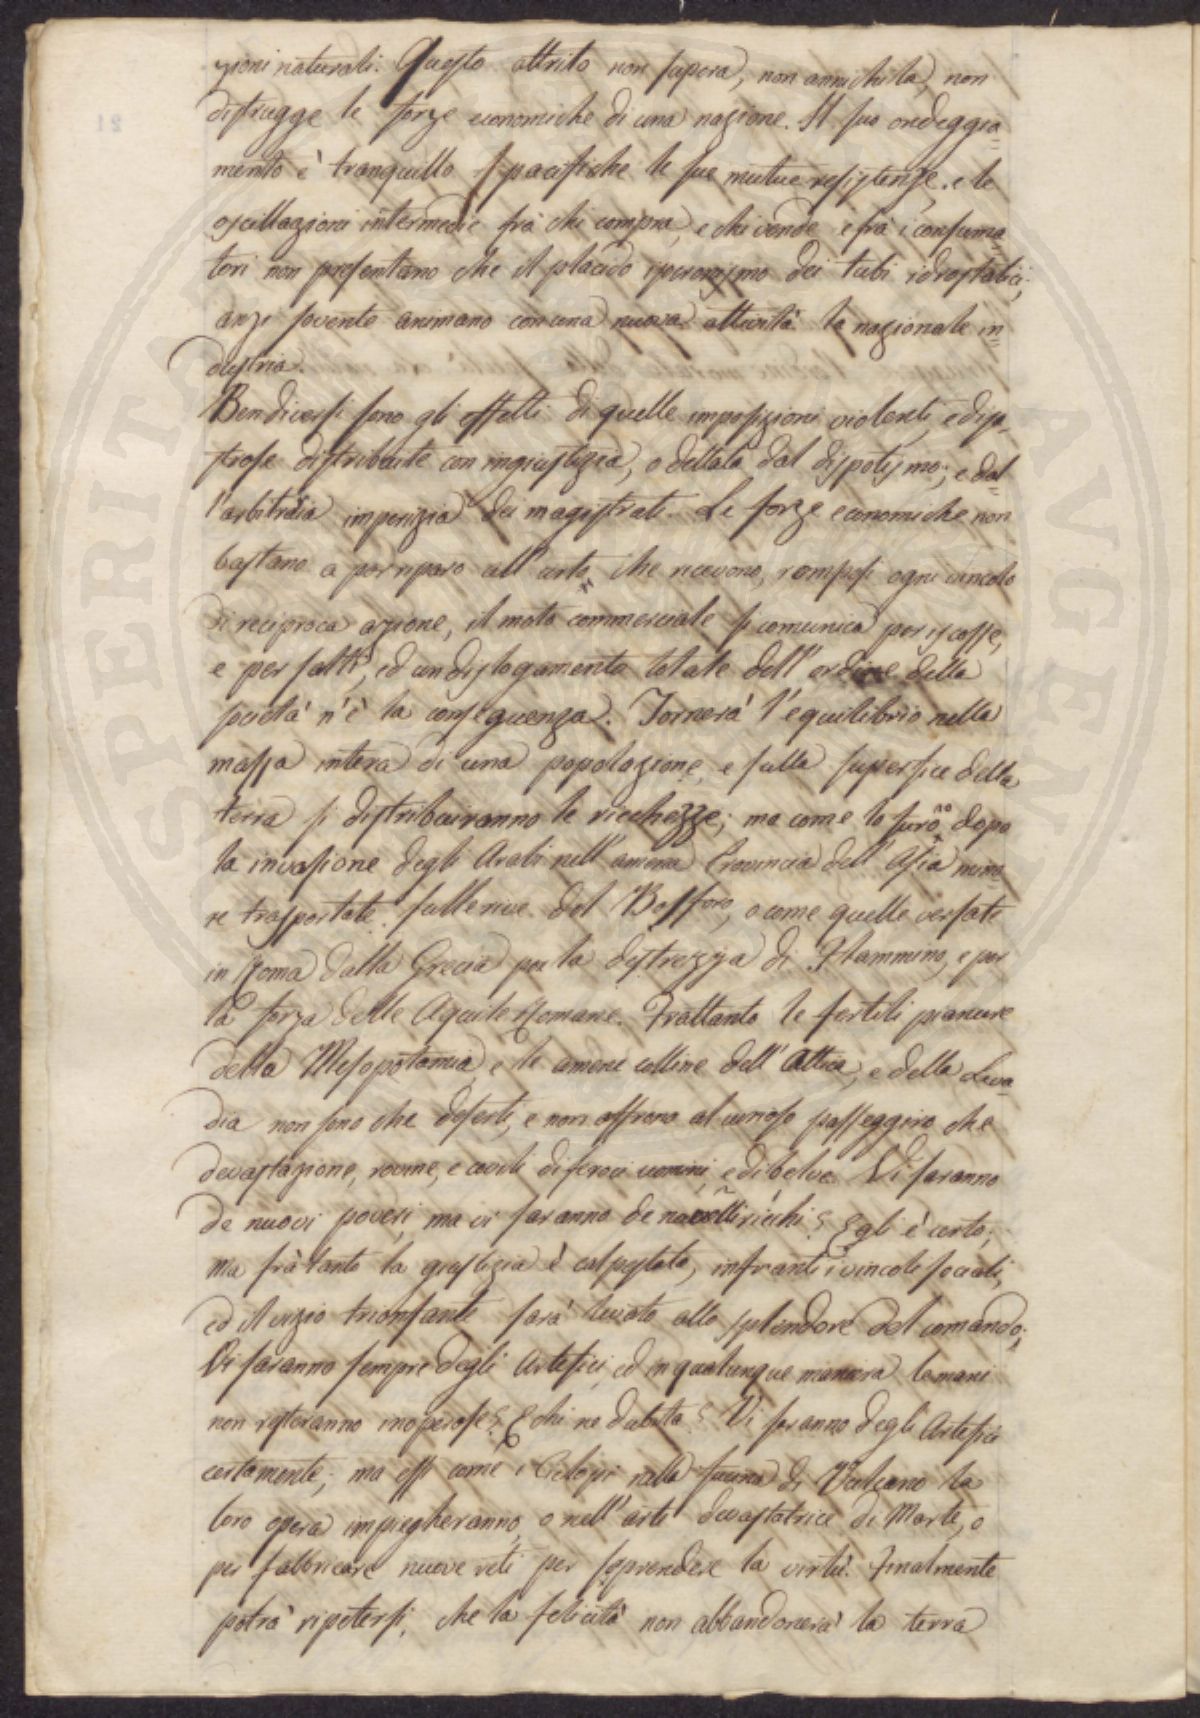 zioni naturali. Questo attrito non supera, non annichila, non
distrugge le forze economiche di una nazione. Il suo ondeggia=
mento è tranquillo pacifiche le sue mutue resistenze, e le
oscillazioni intermedie frà chi compra, e chi vende e frà i consuma
tori non presentano che il placido dei tubi idrostatici;
anzi sovente animano con una nuova attività la nazionale in=
dustria.
Ben diversi sono gli effetti di quelle imposizioni violenti, e disa
strose distribuite con ingiustizia, o dettate dal dispotismo; e dal=
l'arbitraia imperizia dei magistrati. Le forze economiche non
bastano a por riparo all'urto, che ricevono, rompesi ogni vincolo
di reciproca azione, il moto commerciale si comunica per iscosse,
e per salti, ed un dislogamento totale dell'ordine della
società n'è la conseguenza. Tornerà l'equilibrio nella
massa intera di una popolazione, e sulla superfice della
terra si distribuiranno le ricchezze; ma come lo furono dopo
la invasione degli Arabi nell'amena Provincia dell'Asia mino=
re trasportate sulle rive del Bosforo, o come quelle versate
in Roma dalla Grecia per la destrezza di Flammino, e per
la forza delle Aquile Romane. Frattanto le fertili pianure
della Mesopotamia, e le amene colline dell'Attica, e della Liva=
dia non sono che deserti, e non offrono al curioso passeggiero che
devastazione, rovine, e covili di feroci uomini, e di belve. Vi saranno
de nuovi poveri, ma vi saranno de novelli ricchi? Egli è certo;
ma fràtanto la giustizia è calpestata, infranti i vincoli sociali,
ed il vizio trionfante sarà levato allo splendore del comando;
Vi saranno sempre degli Artefici, ed in qualunque maniera le mani
non resteranno inoperose? E chi ne dubita? Vi saranno degli Artefici
certamente; ma essi come i Ciclopi nella fucina di Vulcano la
loro opera impiegheranno, o nell'arte devastatrice di Marte, o
per fabbricare nuove reti per soprendere la virtù. Finalmente
potrà ripetersi, che la felicità non abbandonerà la terra